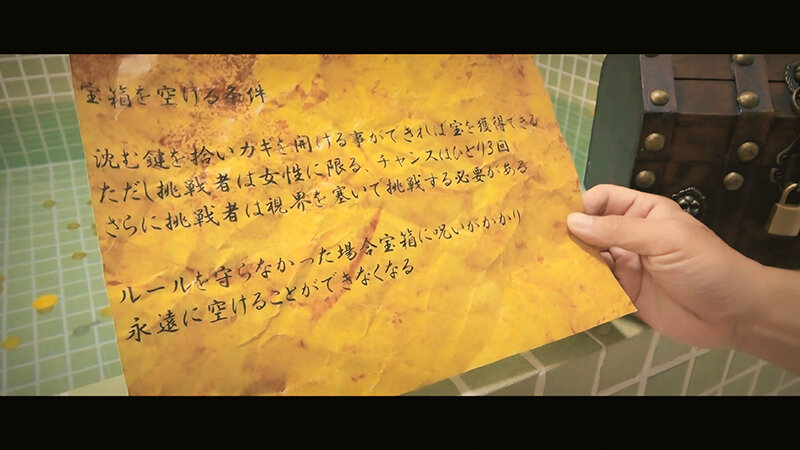 宝箱を空ける条件
沈む鍵を拾いカギを開ける事ができれば宝を獲得できる
ただし挑戦者は女性に限る、チャンスはひとり3回
さらに挑戦者は視界を塞いで挑戦する必要がある
ルールを守らなかった場合宝箱に呪いがかかり
永遠に空けることができなくなる